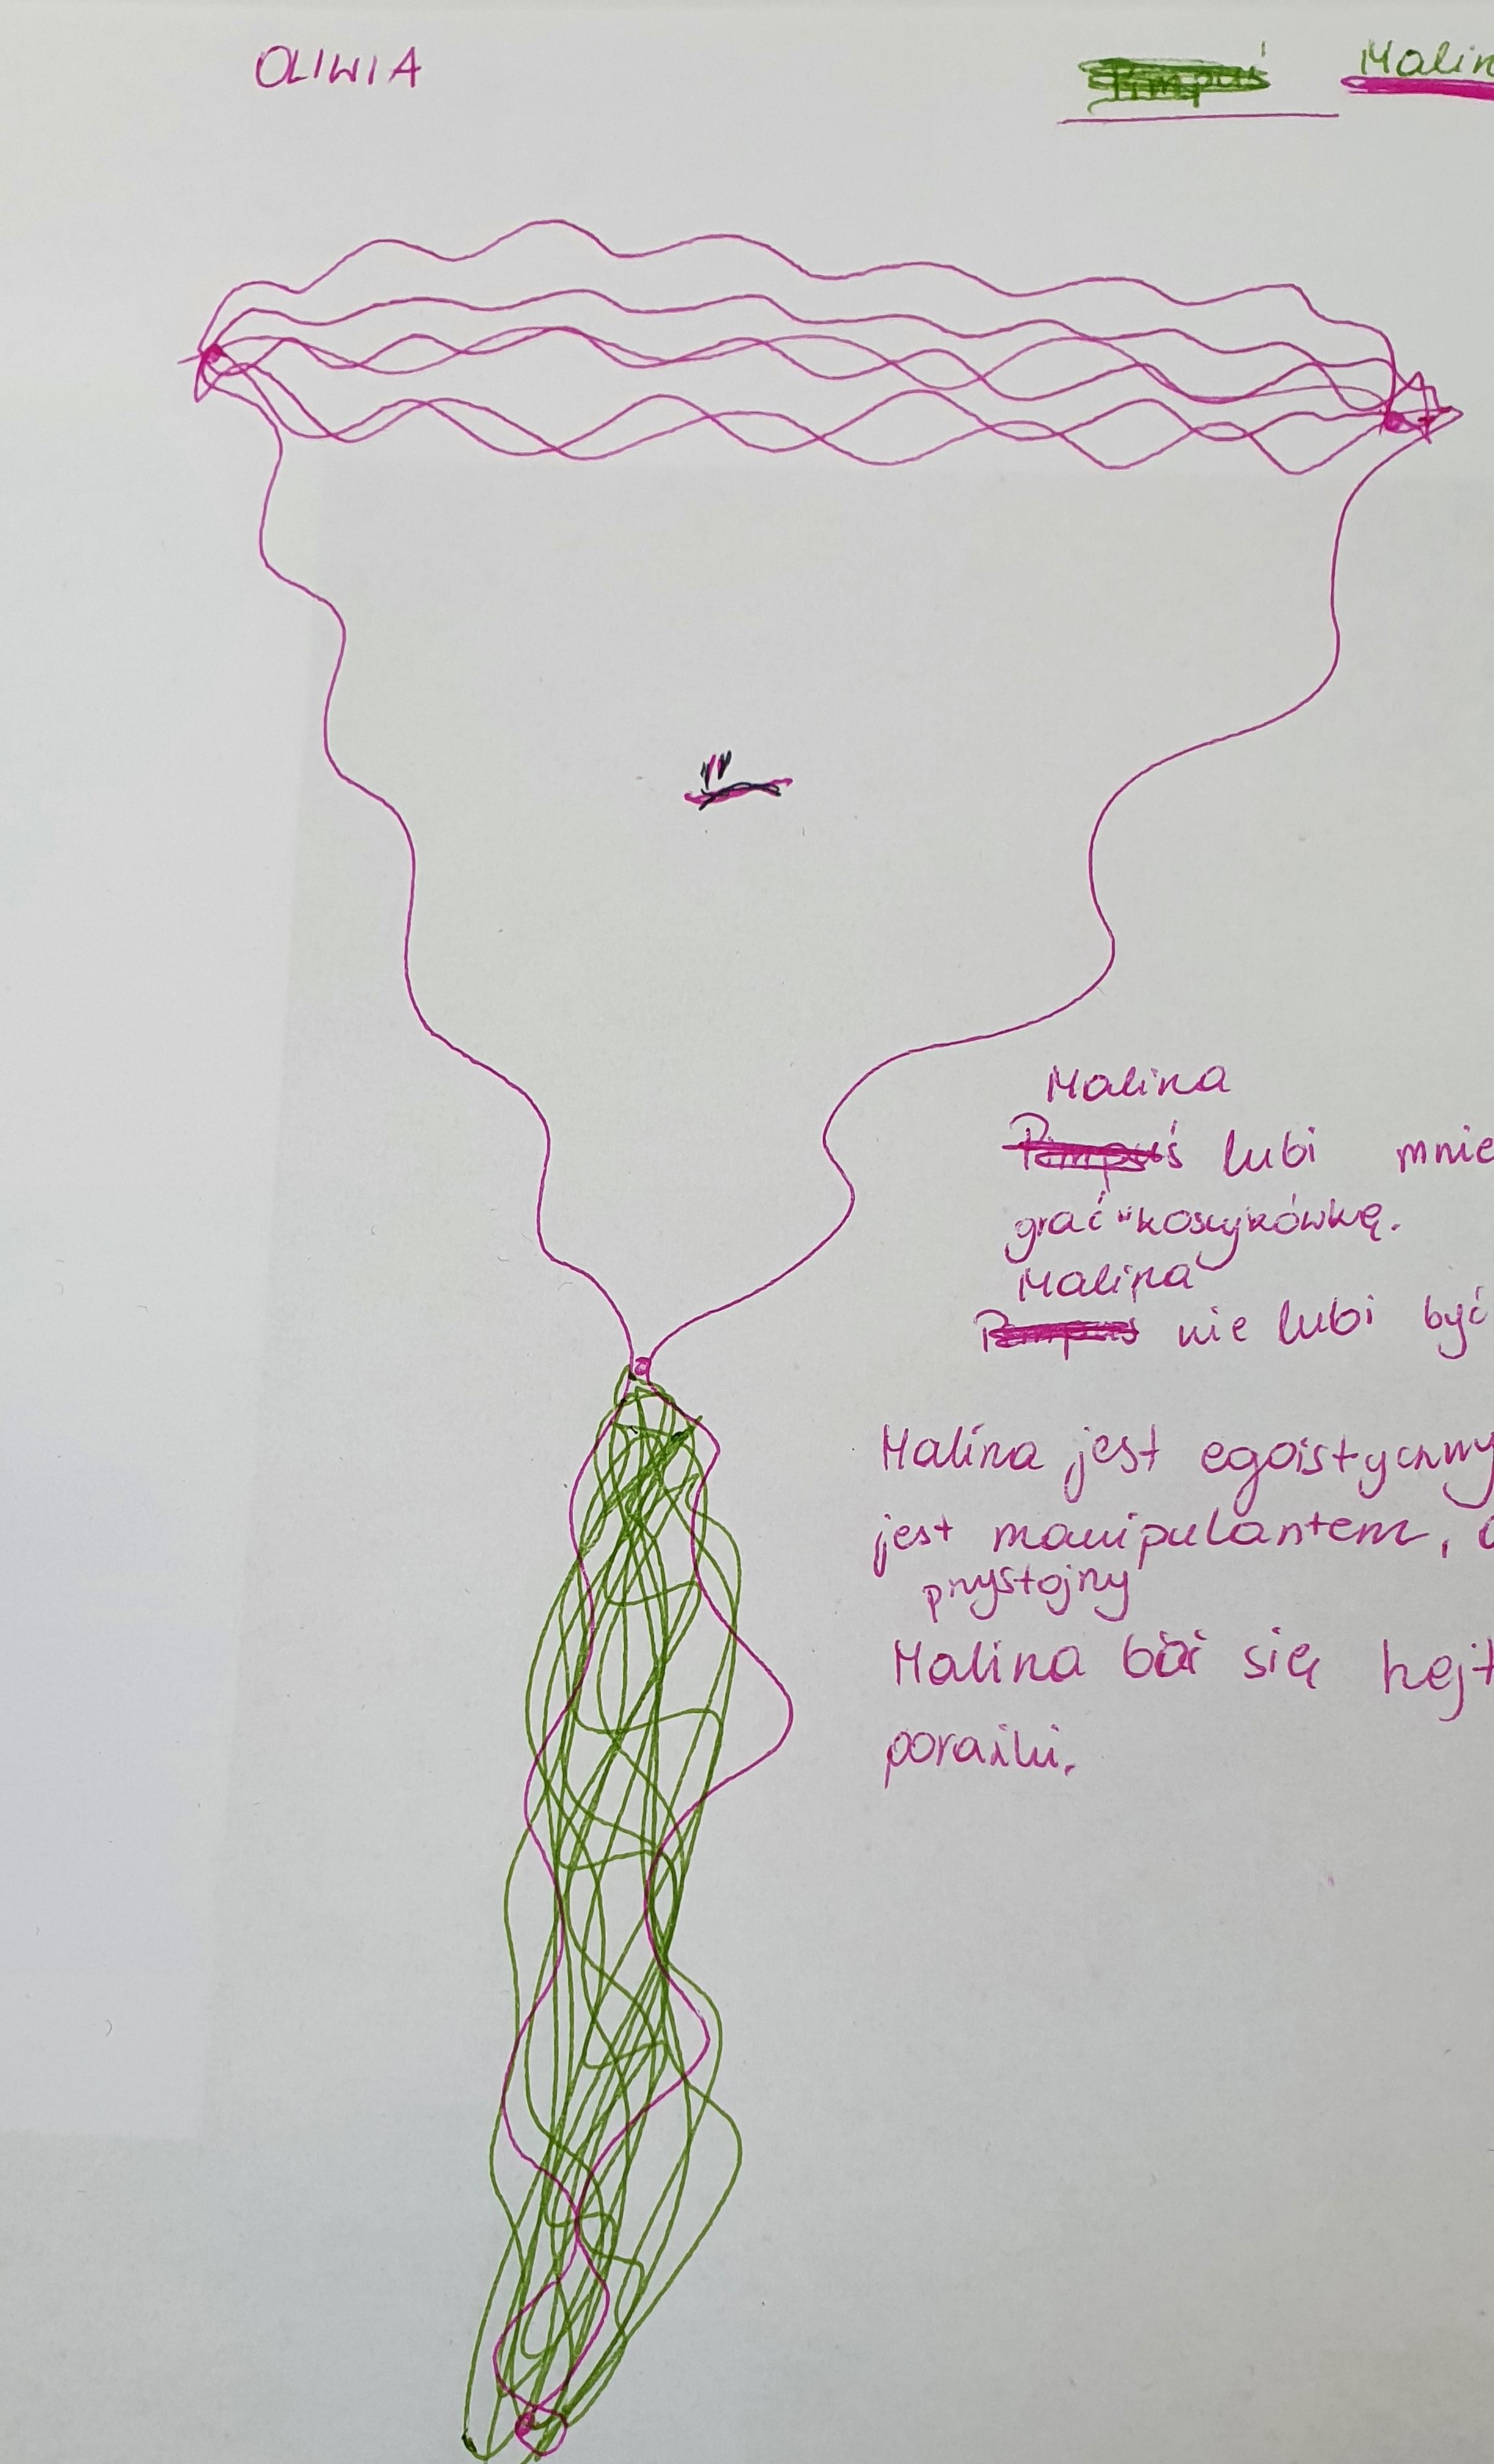 OLIWIA
Pimpuś Malin
Malina
Pimpuś lubi mnie
grać w koszykówkę.
Malina
Pimpuś nie lubi być
Malina jest egoistyczny
jest manipulantem,
przystojny
Malina boi się hejt
porażki.